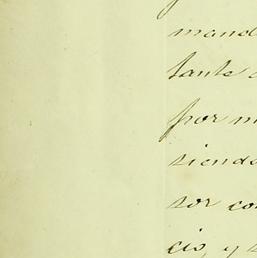 mand
tante
por m
siendo
sor co
cio, y s